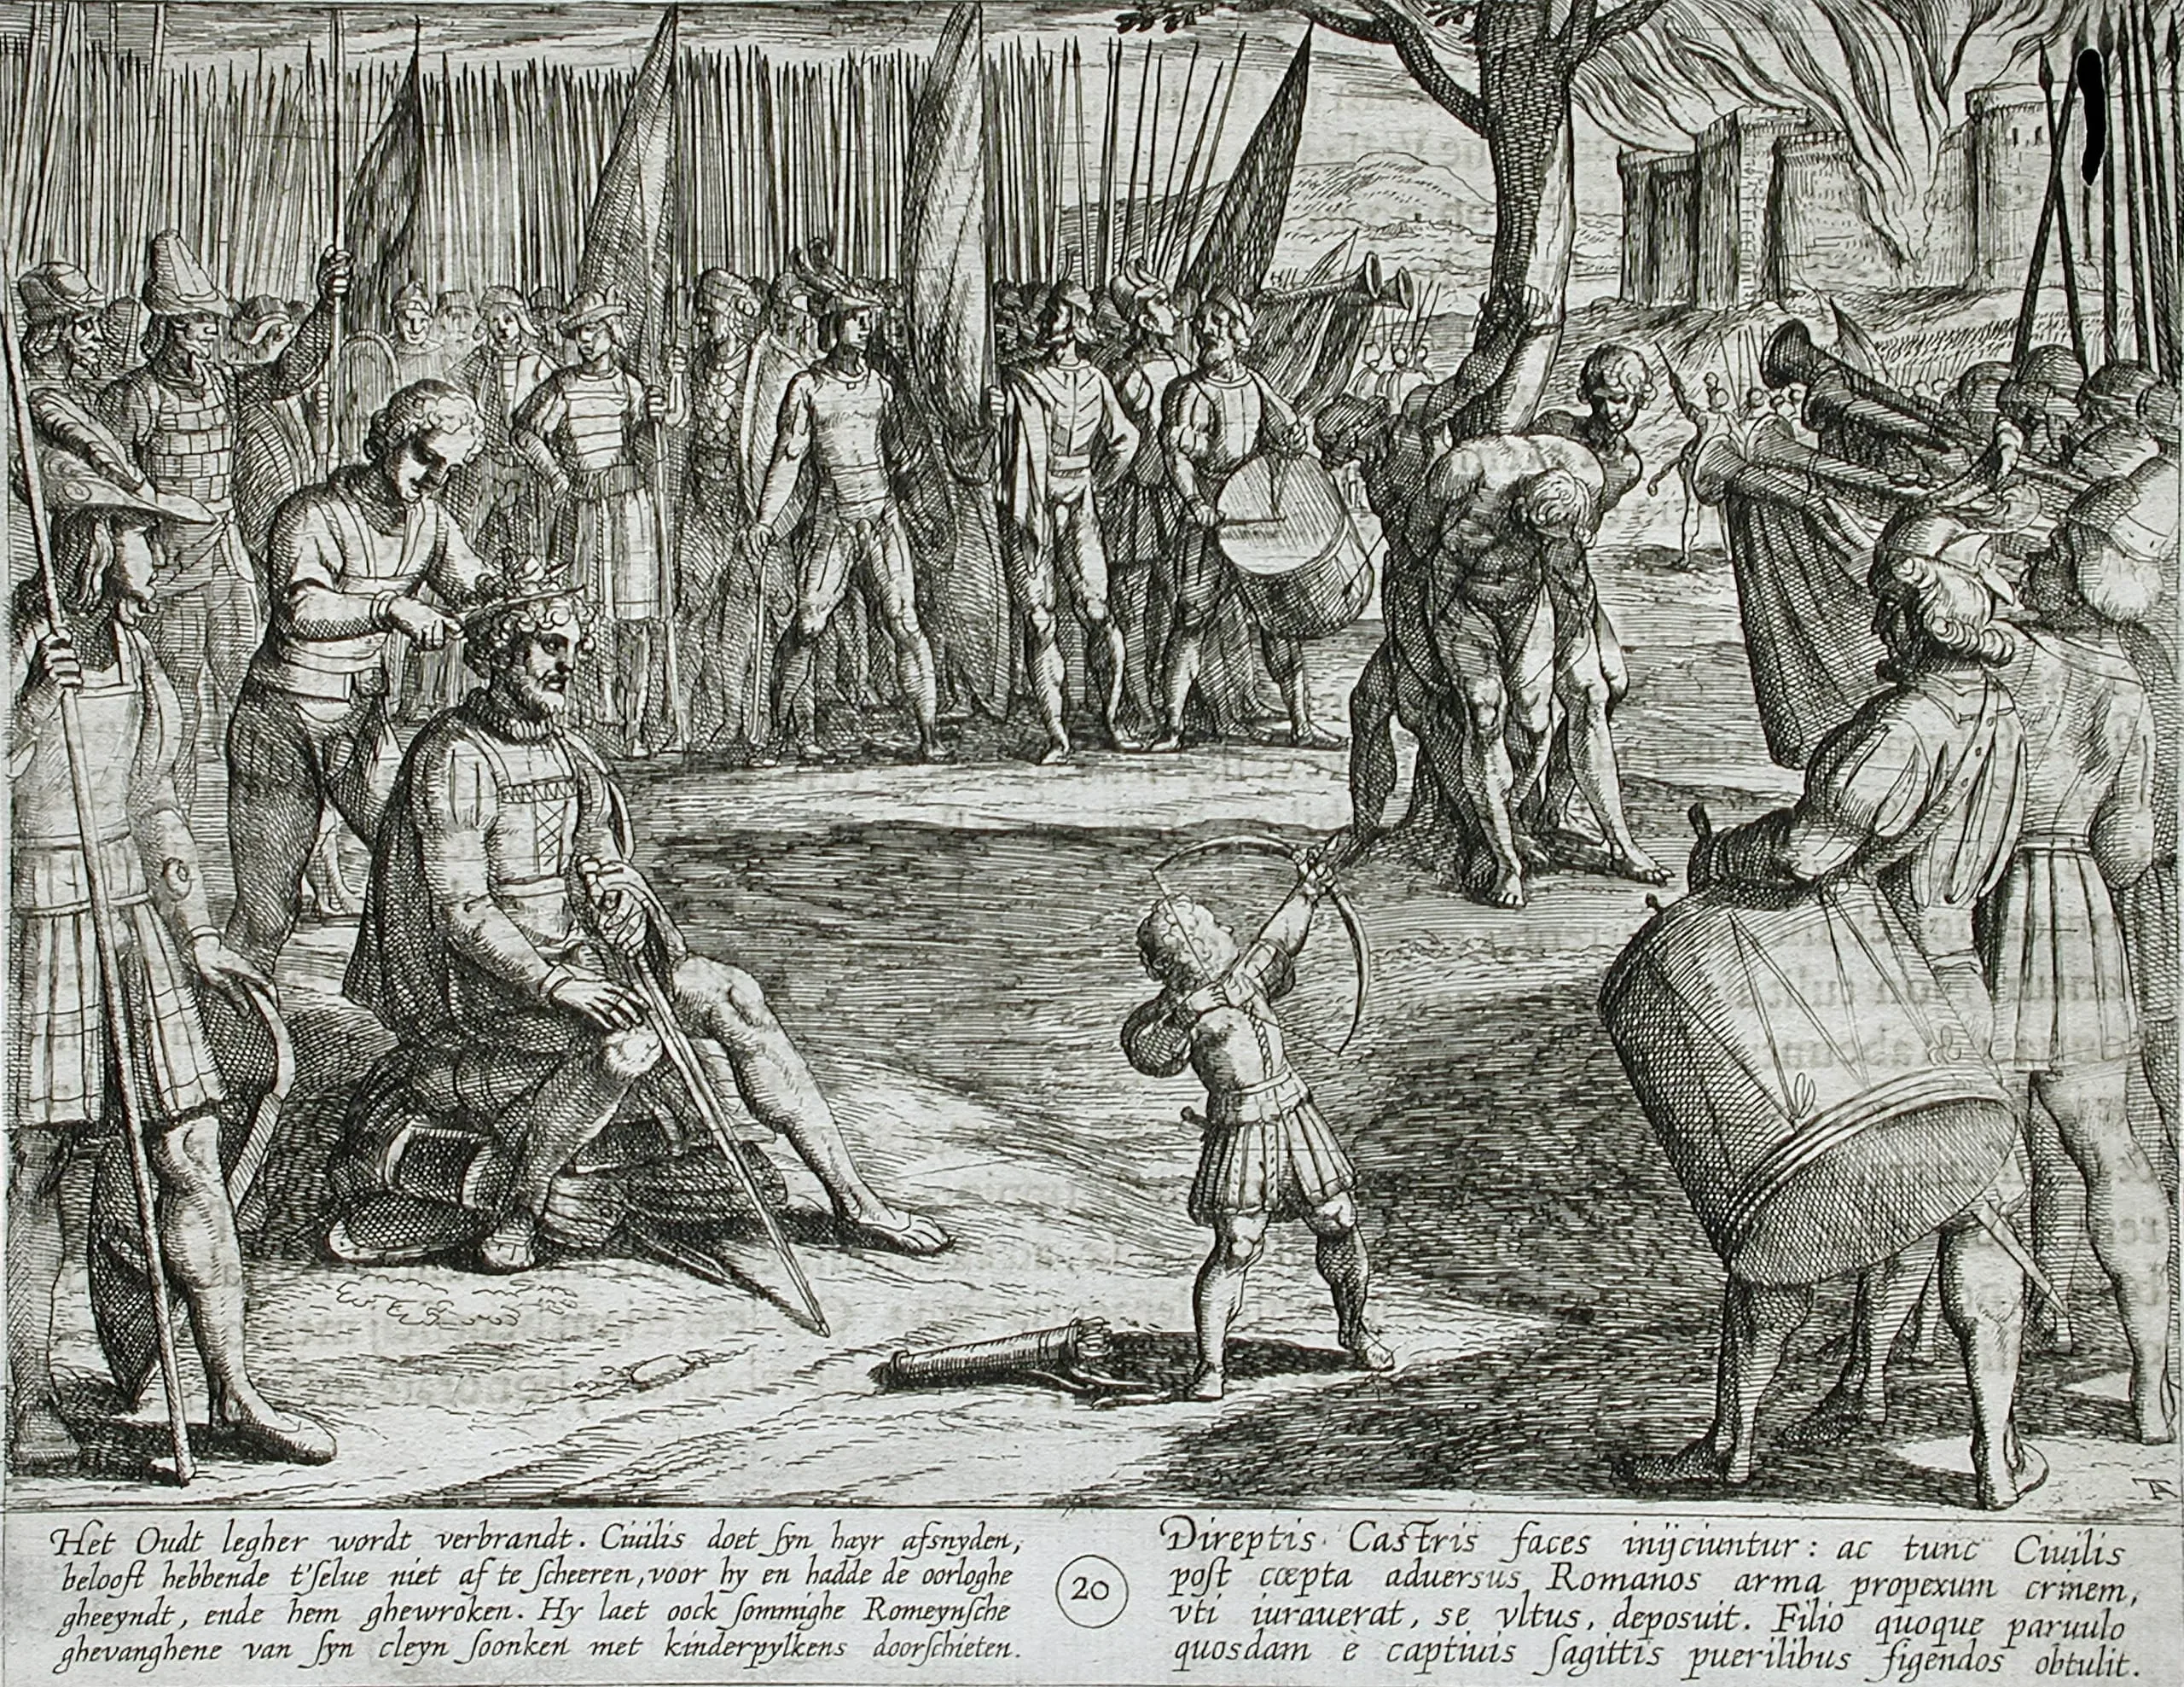 Het Oudt legher wordt verbrandt. Ciuilis doet ſyn hayr afsnyden,
belooft hebbende t'ſelue niet af te ſcheeren, voor hy en hadde de oorloghe
gheeyndt, ende hem ghewroken. Hy laet oock ſommighe Romeynſche
ghevanghene van ſyn cleyn ſoonken met kinderpylkens doorſchieten.
20
Direptis Castris faces inijciuntur: ac tunc Ciuilis
poſt cœpta aduersus Romanos arma propexum crinem,
vti iurauerat, se vltus, deposuit. Filio quoque paruulo
quosdam è captiuis ſagittis puerilibus figendos obtulit.